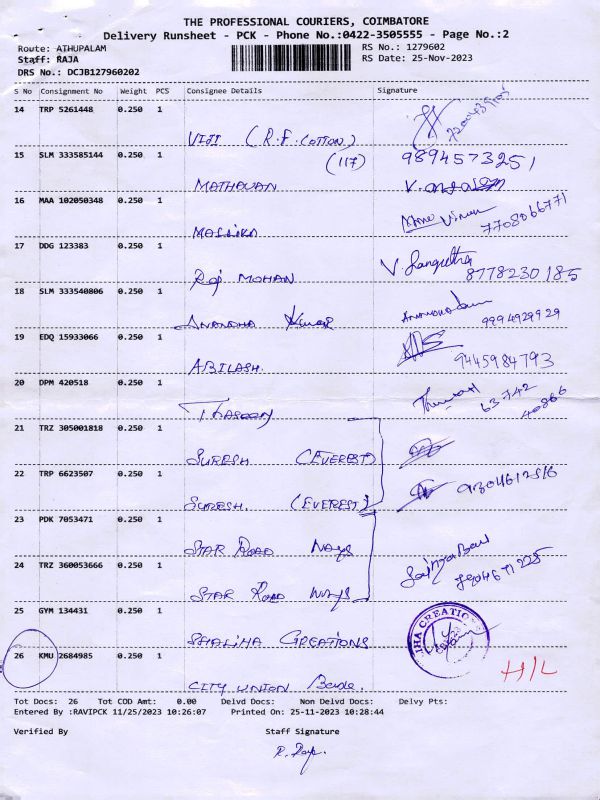 THE PROFESSIONAL COURIERS, COIMBATORE
Delivery Runsheet - PCK - Phone No.:0422-3505555 - Page No.:2
Route: ATHUPALAM RS No.: 1279602
Staff: RAJA RS Date: 25-Nov-2023
DRS No.: DCJB127960202
S No Consignment No Weight PCS Consignee Details Signature
14 TRP 5261448 0.250 1
VIJI (R.F. COTTON)
15 SLM 333585144 0.250 1 (117) 9894573251
MATHAVAN
16 MAA 102050348 0.250 1
MALLIKA 7708066771
17 DDG 123383 0.250 1
Raj MOHAN V. Sangeetha 8778230185
18 SLM 333540806 0.250 1
ANANDHA Kumar 9994929929
19 EDQ 15933066 0.250 1
ABILASH. 9445984793
20 DPM 420518 0.250 1
63742
40866
21 TRZ 305001818 0.250 1
SURESH (EVEREST)
22 TRP 6623507 0.250 1
SURESH. (EVEREST)
23 PDK 7053471 0.250 1
STAR ROAD Ways
24 TRZ 360053666 0.250 1
STAR ROAD Ways
25 GYM 134431 0.250 1
SHALIHA CREATIONS
IHA CREATIONS
26 KMU 2684985 0.250 1 H/L
CITY UNION Bank.
Tot Docs: 26 Tot COD Amt: 0.00 Delvd Docs: Non Delvd Docs: Delvy Pts:
Entered By :RAVIPCK 11/25/2023 10:26:07 Printed On: 25-11-2023 10:28:44
Verified By Staff Signature
R. Raja.